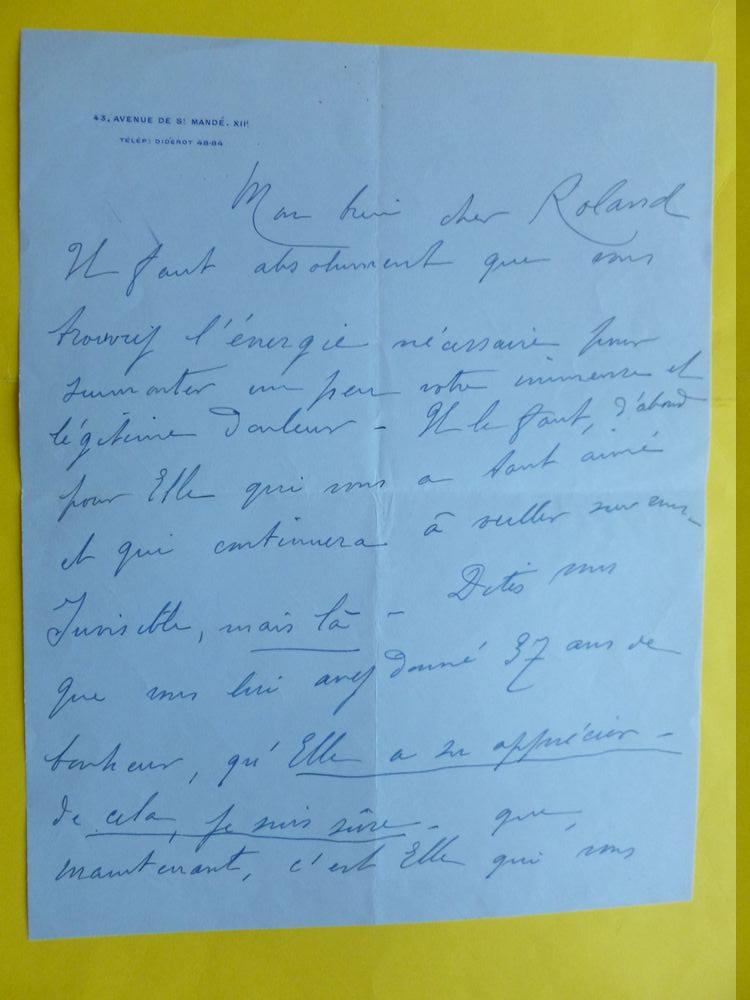 43, AVENUE DE ST MANDÉ. XIIE
TÉLÉPT DIDEROT 48-84
Mon bien cher Roland
Il faut absolument que vous
trouviez l'énergie nécessaire pour
surmonter un peu votre immense et
légitime douleur - Il le faut, d'abord
pour Elle qui vous a tant aimé
et qui continuera à veiller sur vous
Invisible, mais là - Dites vous
que vous lui avez donné 37 ans de
bonheur, qu'Elle a su apprécier -
de cela, je suis sûre - que,
maintenant, c'est Elle qui vous